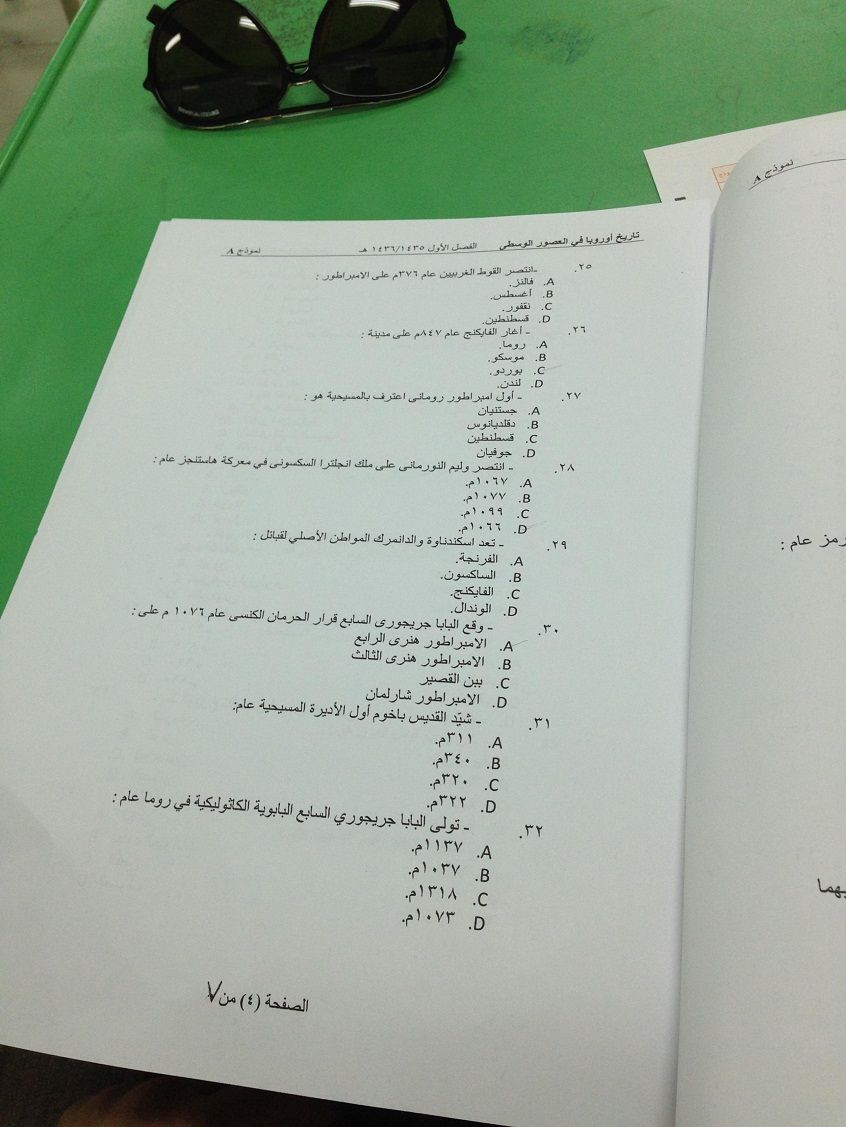 تاريخ أوروبا في العصور الوسطى الفصل الأول ١٤٣٦/١٤٣٥ هـ نموذج A
٢٥. -انتصر القوط الغربيين عام ٣٧٦م على الامبراطور :
A. فالنز.
B. أغسطس.
C. نقفور.
D. قسطنطين.
٢٦. - أغار الفايكنج عام ٨٤٧م على مدينة :
A. روما.
B. موسكو.
C. بوردو.
D. لندن.
٢٧. - أول امبراطور رومانى اعترف بالمسيحية هو :
A. جستنيان
B. دقلديانوس
C. قسطنطين
D. جوفيان
٢٨. - انتصر وليم النورمانى على ملك انجلترا السكسونى في معركة هاستنجز عام :
A. ١٠٦٧م.
B. ١٠٧٧م.
C. ١٠٩٩م.
D. ١٠٦٦م.
٢٩. - تعد اسكندناوة والدانمرك المواطن الأصلي لقبائل :
A. الفرنجة.
B. الساكسون.
C. الفايكنج.
D. الوندال.
٣٠. - وقع البابا جريجورى السابع قرار الحرمان الكنسى عام ١٠٧٦ م على :
A. الامبراطور هنرى الرابع
B. الامبراطور هنرى الثالث
C. ببن القصير
D. الامبراطور شارلمان
٣١. - شيّد القديس باخوم أول الأديرة المسيحية عام:
A. ٣١١م.
B. ٣٤٠م.
C. ٣٢٠م.
D. ٣٢٢م.
٣٢. - تولى البابا جريجوري السابع البابوية الكاثوليكية في روما عام :
A. ١١٣٧م.
B. ١٠٣٧م.
C. ١٣١٨م.
D. ١٠٧٣م.
الصفحة (٤) من ٧
نموذج A
رمز عام :
يهما